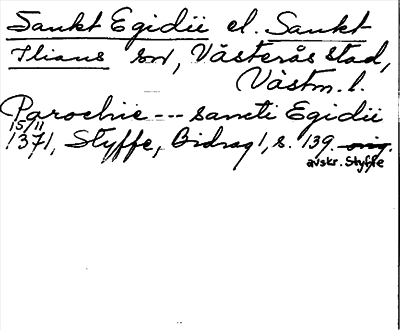 Sankt Egidii el. Sankt
Ilians sn, Västerås stad,
Västm. l.
Parochie --- sancti Egidii
15/11
1371, Styffe, Bidrag 1, s. 139. orig.
avskr. Styffe